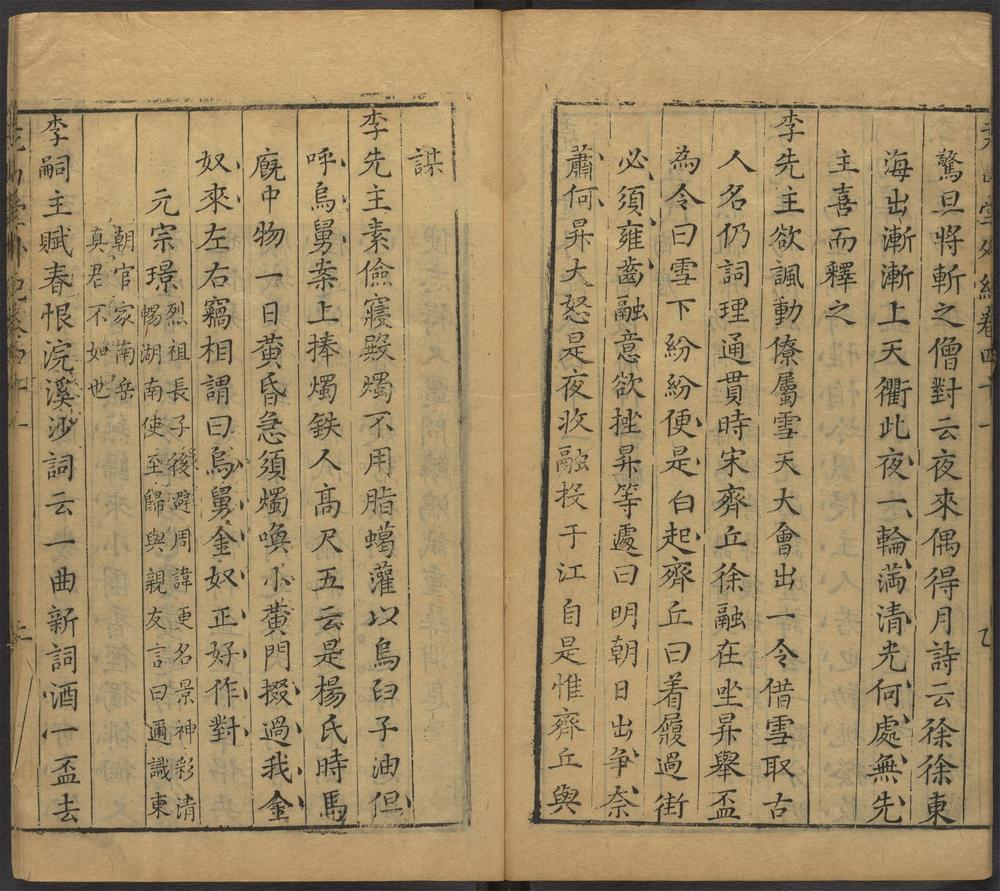 驚旦將斬之僧對云夜來偶得月詩云徐徐東
海出漸漸上天衢此夜一輪滿清光何處無先
主喜而釋之
李先主欲諷動僚屬雪天大會出一令借雪取古
人名仍詞理通貫時宋齊丘徐融在坐昇舉盃
為令曰雪下紛紛便是白起齊丘曰着履過街
必須雍齒融意欲挫昇等遽曰明朝日出爭奈
蕭何昇大怒是夜收融投于江自是惟齊丘與
謀
李先主素儉寢殿燭不用脂蠟灌以烏臼子油但
呼烏舅案上捧燭鉄人高尺五云是楊氏時馬
廐中物一日黄昏急須燭喚小黄門掇過我金
奴來左右竊相謂曰烏舅金奴正好作對
元宗璟烈祖長子後避周諱更名景神彩清
暢湖南使至歸與親友言曰邇識東
朝官家南岳
真君不如也
李嗣主賦春恨浣溪沙詞云一曲新詞酒一盃去